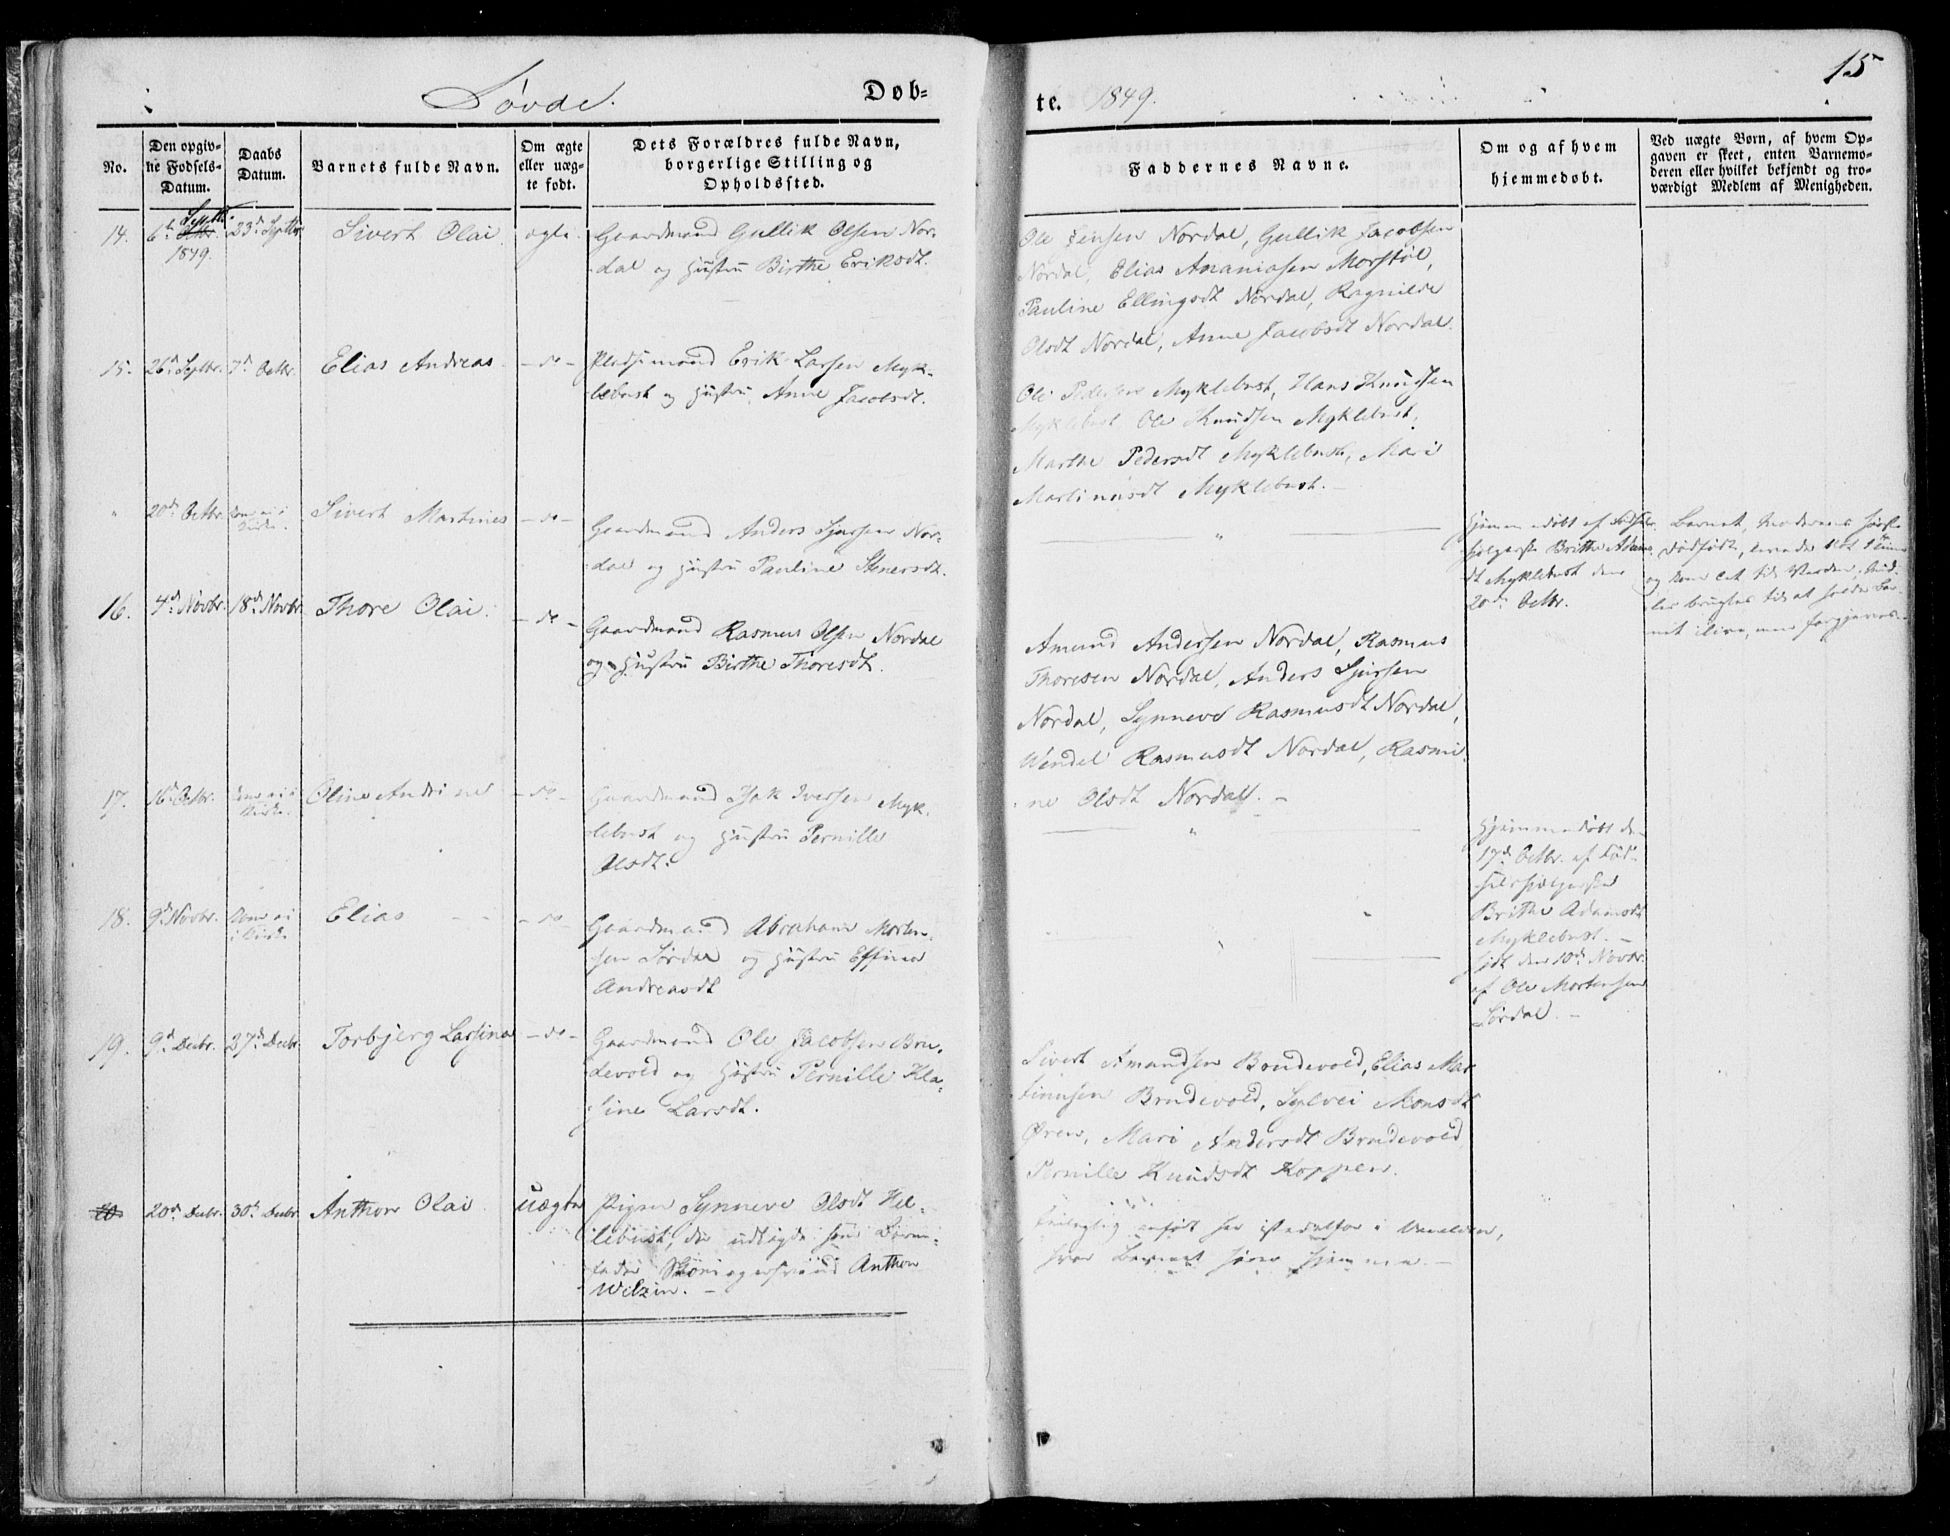 Søvde.
Døb-
te. 1849.
15
No.
Den opgiv-
ne Fødsels-
Datum.
Daabs
Datum.
Barnets fulde Navn.
Om ægte
eller uæg-
te født.
Dets Forældres fulde Navn,
borgerlige Stilling og
Opholdssted.
Faddernes Navne.
Om og af hvem
hjemmedøbt.
Ved uægte Børn, af hvem Op-
gaven er skeet, enten Barnemo-
deren eller hvilket bekjendt og tro-
værdigt Medlem af Menigheden.
14.
Septbr.
6te Octbr.
1849.
23d Septbr.
Sivert Olai
ægte
Gaardmand Gullik Olsen Nor-
dal og Hustru Birthe Eriksdt.
Ole Jensen Nordal, Gullik Jacobsen
Nordal, Elias Ananiasen Morstøl,
Pauline Ellingsdt Nordal, Ragnilde
Olsdt Nordal, Anne Jacobsdt Nordal.
15.
26d Septbr.
7d Octbr.
Elias Andreas
- do -
Pladsmand Erik Larsen Myk-
lebust og Hustru Anne Jacobsdt.
Ole Pedersen Myklebust, Hans Knudsen
Myklebust, Ole Knudsen Myklebust,
Marthe Pedersdt Myklebust, Mari
Martinusdt Myklebust. -
"
20d Octbr.
Kom ei i
Kirke.
Sivert Martines
- do -
Gaardmand Anders Sjursen Nor-
dal og Hustru Pauline Stenersdt.
"
Hjemmedøbt af Fødsels-
hjelperske Brithe Adams-
dt Myklebust den
20d Octbr.
Barnet, Moderens første
dødfødt, levede blot 1 Time
og kom let til Verden, Mid-
ler brugtes til at holde Bar-
net ilive, men forgjæves. -
16.
4d Novbr.
18d Novbr.
Thore Olai
- do -
Gaardmand Rasmus Olsen Nordal
og Hustru Birthe Thoresdt.
Amund Andersen Nordal, Rasmus
Thoresen Nordal, Anders Sjursen
Nordal, Synneve Rasmusdt Nordal,
Wendel Rasmusdt Nordal, Rasmi-
ne Olsdt Nordal. -
17.
16d Octbr.
Kom ei i
Kirke.
Oline Andrine
- do -
Gaardmand Isak Iversen Myk-
lebust og Hustru Pernille
Olsdt.
"
Hjemmedøbt den
17d Octbr. af Fød-
selshjelperske
Brithe Adamsdt
Myklebust. -
18.
9d Novbr.
Kom ei
i Kirke
Elias
- do -
Gaardmand Abraham Morten-
sen Sørdal og Hustru Effine
Andreasdt
"
Hjdt den 10d Novbr.
af Ole Mortensen
Sørdal. -
19.
9d Decbr.
27d Decbr.
Torbjerg Larsine
- do -
Gaardmand Ole Jacobsen Bru-
devold og Hustru Pernille Kla-
sine Larsdt.
Sivert Amundsen Brudevold, Elias Mar-
tinusen Brudevold, Sylvei Monsdt
Øren, Mari Andersdt Brudevold
Pernille Knudsdt Koppen.
20
20d Decbr.
30d Decbr.
Anthon Olai
uægte
Pigen Synneve Olsdt Hel-
lebust, der udlagde som Barne-
fader Anthon
Wilzin. -
feilagtig anført her istedetfor i Vanelven,
hvor Barnet hører hjemme. -